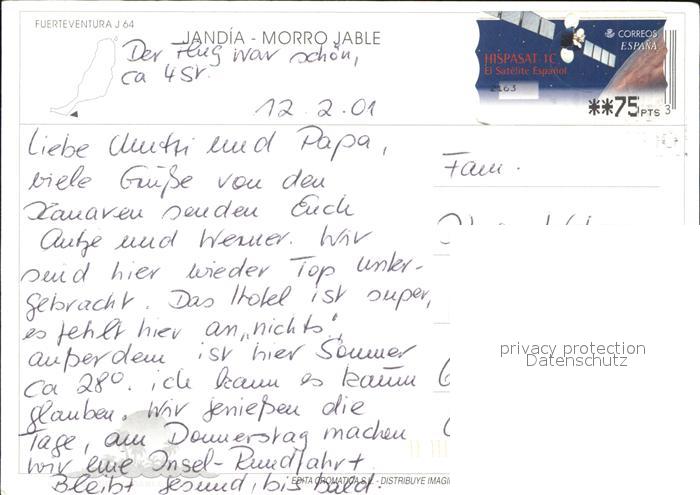 FUERTEVENTURA J 64
JANDÍA - MORRO JABLE
Der Flug war schön,
ca 4 St.
CORREOS
ESPAÑA
HISPASAT 1C
El Satélite Español
2163
**75 PTS 3
12.2.01
Liebe Mutti und Papa,
viele Grüße von den
Kanaren senden Euch
Antje und Werner. Wir
sind hier wieder Top unter-
gebracht. Das Hotel ist super,
es fehlt hier an „nichts",
außerdem ist hier Sommer
ca 28°. ich kann es kaum
glauben. Wir genießen die
Tage, am Donnerstag machen
wir eine Insel-Rundfahrt.
Bleibt gesund, bis bald.
Fam.
privacy protection
Datenschutz
EDITA CROMATICA S.L. - DISTRIBUYE IMAGI